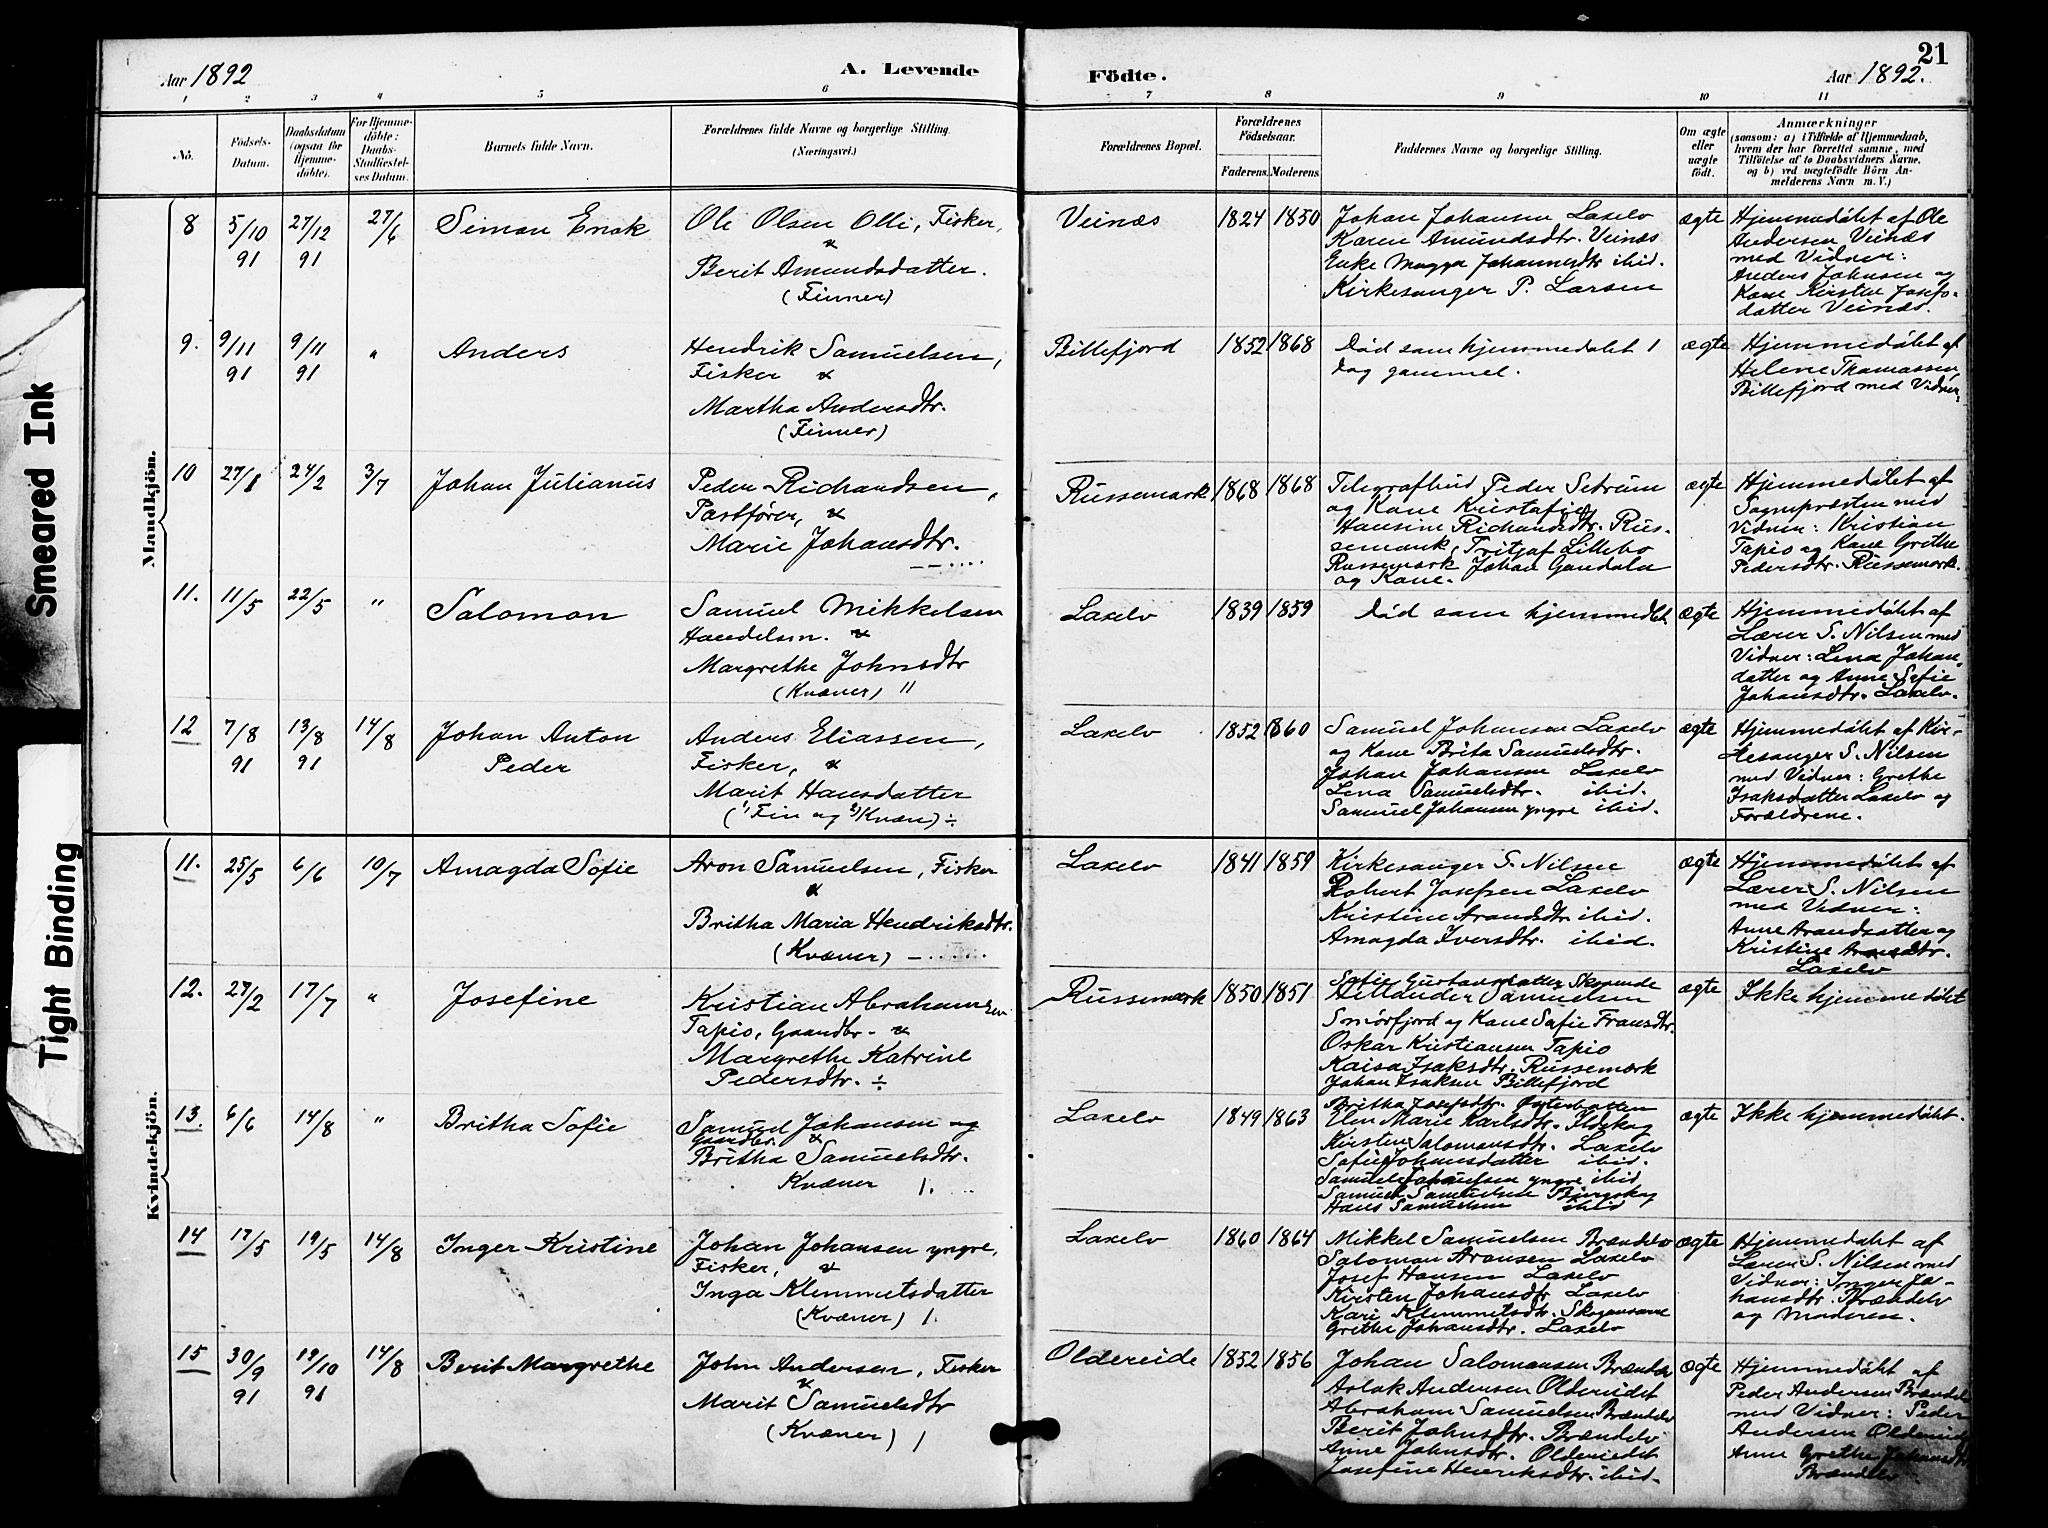 Smeared Ink
Tight Binding
21
Aar 1892
A. Levende
Födte.
Aar 1892.
1 2 3 4 5 6 7 8 9 10 11
No.
Födsels-
Datum.
Daabsdatum
(ogsaa for
Hjemme-
döbte).
For Hjemme-
döbte:
Daabs-
Stadfæstel-
ses Datum.
Barnets fulde Navn.
Forældrenes fulde Navne og borgerlige Stilling.
(Næringsvei.)
Forældrenes Bopæl.
Forældrenes
Födselsaar.
Faderens. Moderens.
Faddernes Navne og borgerlige Stilling.
Om ægte
eller
uægte
födt.
Anmærkninger
(saasom: a) i Tilfælde af Hjemmedaab,
hvem der har forrettet samme, med
Tilföielse af to Daabsvidners Navne,
og b) ved uægtefödte Börn An-
melderens Navn m. V.)
Mandkjön.
8
5/10
91
27/12
91
27/6
Simon Enok
Ole Olsen Olli, Fisker,
&
Berit Amundsdatter.
(Finner)
Veinæs
1824 1850
Johan Johansen Laxelv
Karen Amundsdtr. Veinæs
Enke Magga Johannesdtr ibid.
Kirkesanger P. Larsen
ægte
Hjemmedøbt af Ole
Andersen Veinæs
med Vidner:
Anders Johnsen og
Kone Kirsten Josefs-
datter Veinæs.
9.
9/11
91
9/11
91
"
Anders
Hendrik Samuelsen,
Fisker &
Martha Andersdtr.
(Finner)
Billefjord
1852 1868
Død som hjemmedøbt 1
Dag gammel.
ægte
Hjemmedøbt af
Helene Thomassen,
Billefjord med Vidner:
10
27/1
24/2
3/7
Johan Julianus
Peder Richardsen,
Postfører, &
Marie Johansdtr.
Russemark
1868 1868
Telegrafbud Peder Sstrøm
og Kone Kristofine
Hansine Richardsdtr. Rus-
semark, Fritjof Lillebo
Russemark Johan Gandala
og Kone.
ægte
Hjemmedøbt af
Sognepresten med
Vidner: Kristian
Tapio og Kone Grethe
Pedersdtr. Russemark.
11.
11/5
22/5
"
Salomon
Samuel Mikkelsen
Handelsm. &
Margrethe Johnsdtr
(Kvæner) "
Laxelv
1839 1859
Død som hjemmedøbt.
ægte
Hjemmedøbt af
Lærer S. Nilsen med
Vidner: Lena Johan-
datter og Anne Sofie
Johansdtr. Laxelv.
12
7/8
91
13/8
91
14/8
Johan Anton
Peder
Anders Eliassen,
Fisker, &
Marit Hansdatter
(1/Fin og 2/Kvæn) ÷
Laxelv
1852 1860
Samuel Johansen Laxelv
og Kone Brita Samuelsdtr.
Johan Johansen Laxelv
Lena Samuelsdtr. ibid.
Samuel Johansen yngre ibid.
ægte
Hjemmedøbt af Kir-
kesanger S. Nilsen
med Vidner: Grethe
Isaksdatter Laxelv og
Forældrene.
Kvindekjön.
11.
25/5
6/6
10/7
Amagda Sofie
Aron Samuelsen, Fisker
&
Britha Maria Hendriksdtr.
(Kvæner)
Laxelv
1841 1859
Kirkesanger S. Nilsen
Robert Josefsen Laxelv
Kristine Aronsdtr ibid.
Amagda Iversdtr. ibid.
ægte
Hjemmedøbt af
Lærer S. Nilsen
med Vidner:
Anne Aronsdatter og
Kristine Aronsdtr.
Laxelv
12.
27/2
17/7
"
Josefine
Kristian Abrahamsen
Tapio, Gaardbr. &
Margrethe Katrine
Pedersdtr. ÷
Russemark
1850 1851
Sofie Gustavsdatter
Samuelsen
Smørfjord og Kone Sofie Fransdtr.
Oskar Kristiansen Tapio
Kaisa Isaksdtr. Russemark
Johan Isaksen Billefjord
ægte
Ikke hjemmedøbt
13.
6/6
14/8
"
Britha Sofie
Samuel Johansen og
Gaardbr. &
Britha Samuelsdtr.
Kvæner
Laxelv
1849 1863
Britha Josefsdtr.
Elen Marie Karlsdtr.
Kirsten Salomonsdtr. Laxelv
Sofie Johansdatter ibid.
Samuel Johansen yngre ibid
Samuel Samuelsen
Hans Samuelsen ibid
ægte
Ikke hjemmedøbt.
14
17/5
19/5
14/8
Inger Kristine
Johan Johansen yngre,
Fisker, &
Inga Klemmetsdatter
(Kvæner)
Laxelv
1860 1864
Mikkel Samuelsen Brændelv
Salomon Aronsen Laxelv
Josef Hansen Laxelv
Kirsten Johansdtr Laxelv
Kari Klemmetsdtr. Skoganvarre
Grethe Johansdtr. Laxelv
ægte
Hjemmedøbt af
Lærer S. Nilsen med
Vidner: Inger Jo-
hansdtr. Brændelv
og Moderen.
15
30/9
91
19/10
91
14/8
Berit Margrethe
John Andersen, Fisker
&
Marit Samuelsdtr
(Kvæner)
Oldereide
1852 1856
Johan Salomonsen Brændelv
Aslak Andersen Oldereidet
Abraham Samuelsen Brændelv
Berit Johnsdtr. Brændelv
Anne Johnsdtr. Oldereidet
Josefine Henriksdtr. ibid.
ægte
Hjemmedøbt af
Peder Andersen Brændelv
med Vidner: Peder
Andersen Oldereide
Anne Grethe Johansdtr
Brændelv